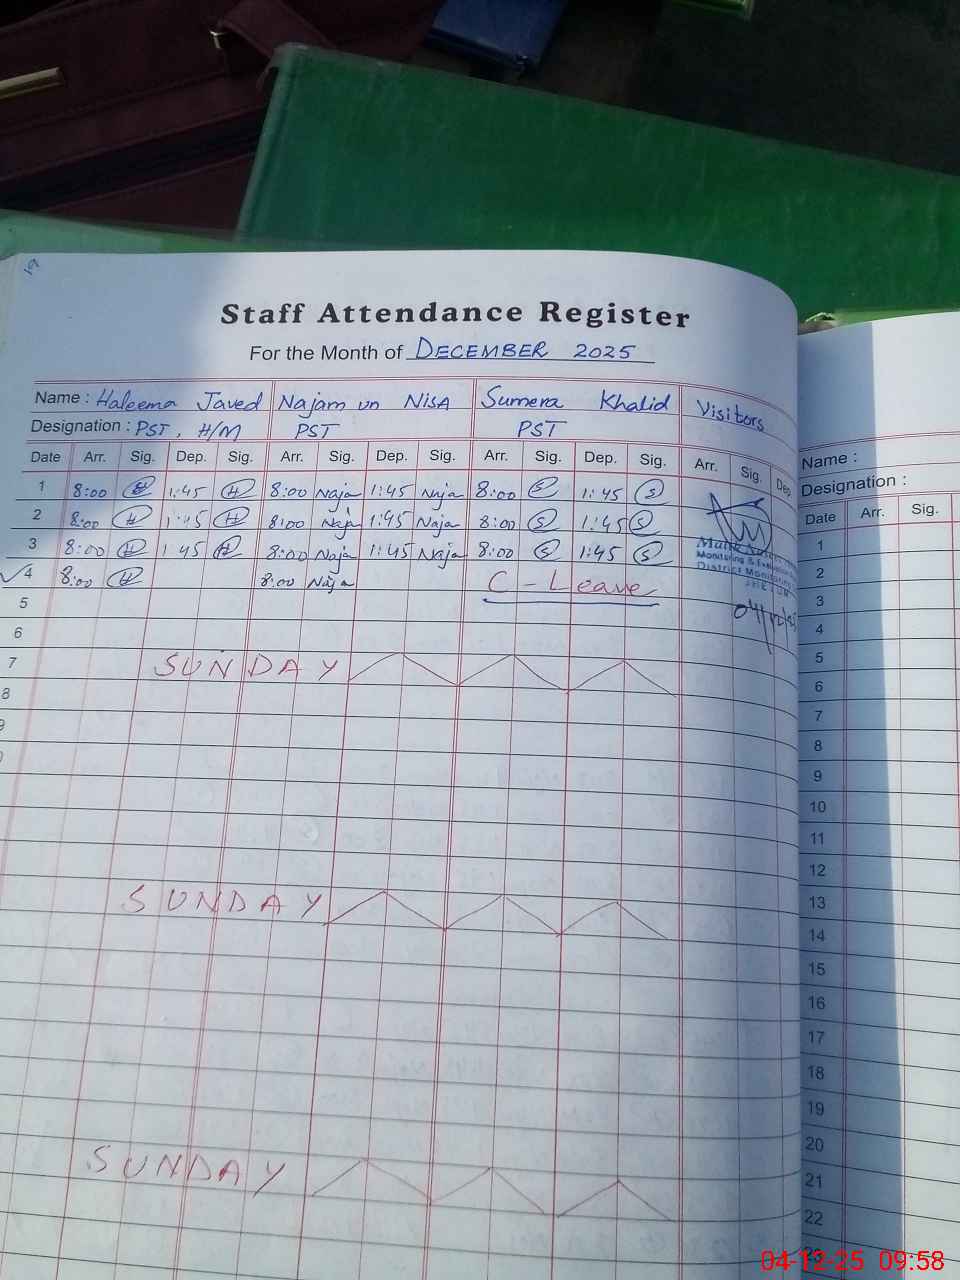 19
Staff Attendance Register
For the Month of DECEMBER 2025
Name : Haleema Javed Najam un NisA Sumera Khalid Visitors
Designation : PST, H/M PST PST
Date Arr. Sig. Dep. Sig. Arr. Sig. Dep. Sig. Arr. Sig. Dep. Sig. Arr. Sig. Dep.
1 8:00 H 1:45 H 8:00 Naja 1:45 Naja 8:00 S 1:45 S
2 8:00 H 1:45 H 8:00 Naja 1:45 Naja 8:00 S 1:45 S
3 8:00 H 1:45 H 8:00 Naja 1:45 Naja 8:00 S 1:45 S
Malik
Monitoring &
District
4 8:00 H 8:00 Naja C - Leave
04/12/25
5
6
7 SUNDAY
8
SUNDAY
SUNDAY
Name :
Designation :
Date Arr. Sig.
1
2
3
4
5
6
7
8
9
10
11
12
13
14
15
16
17
18
19
20
21
22
04-12-25 09:58